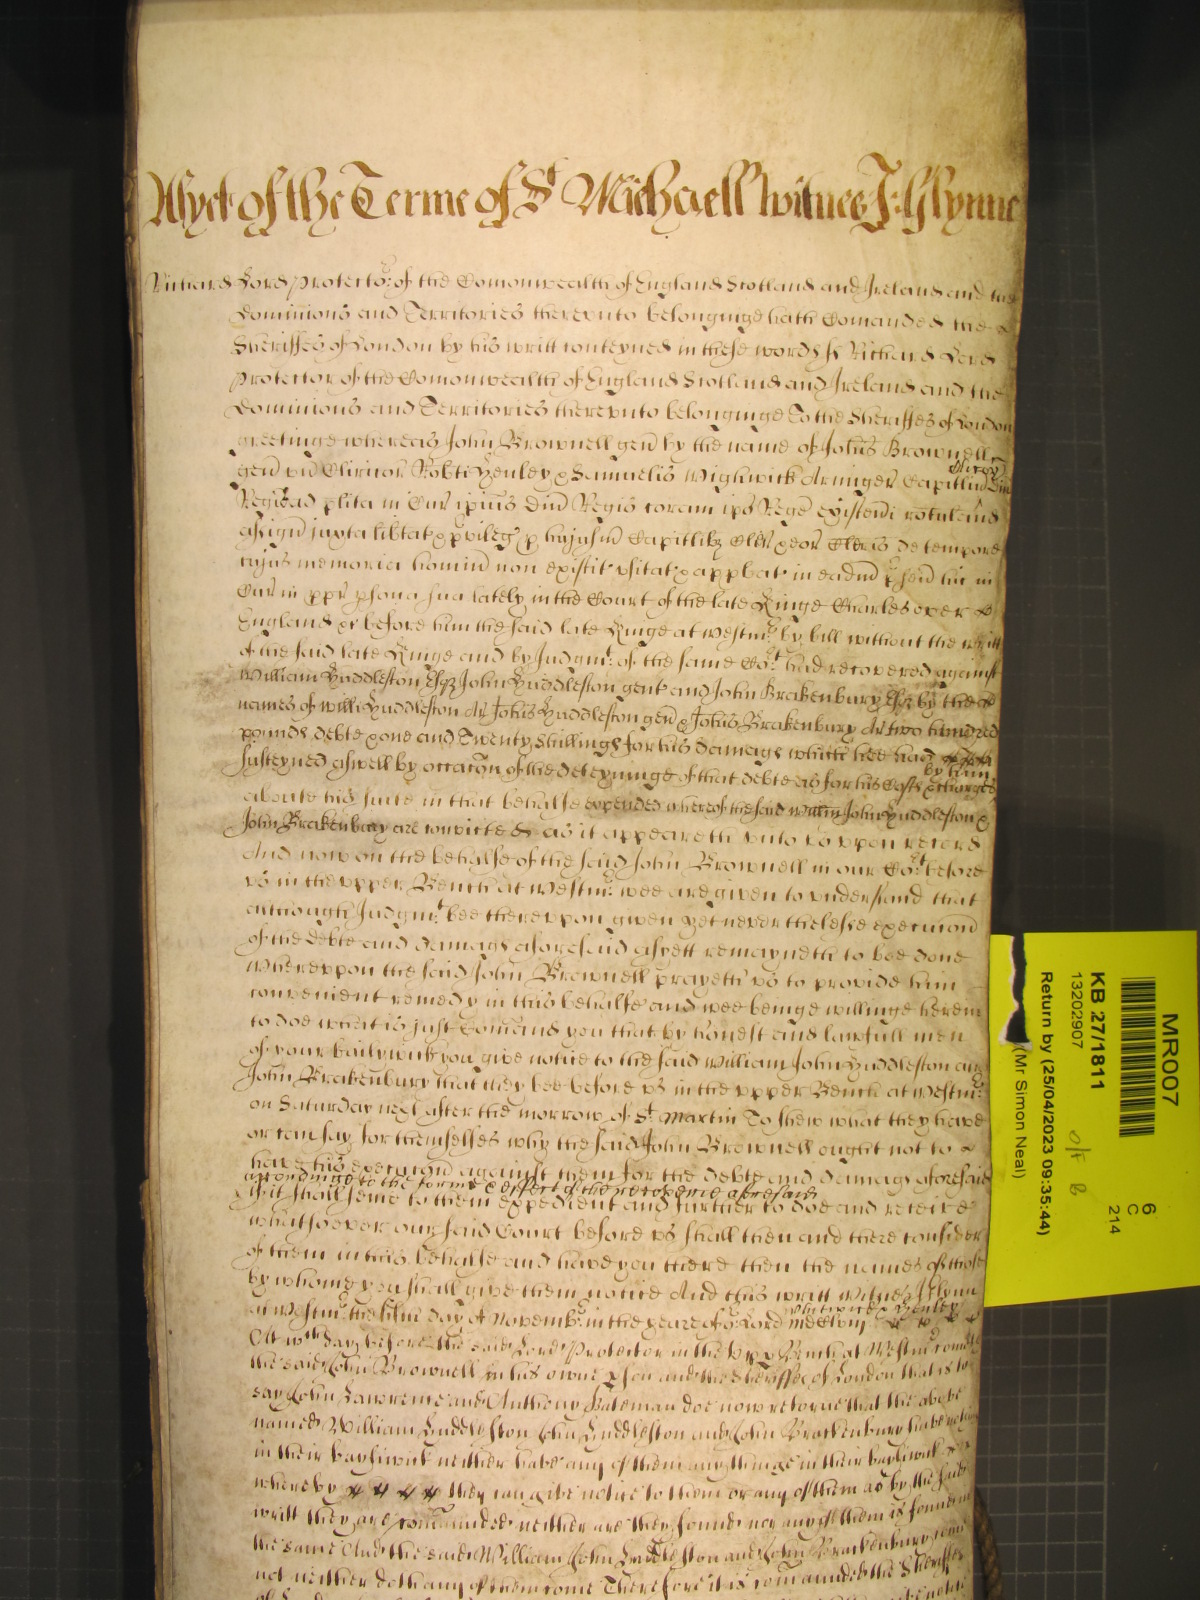 As yet of the Terme of St Michaell witnes J: Glynne
Richard Lord protector of the Comonwealth of England Scotland and Ireland and the
Dominions and Territories thereunto belonginge hath Comanded the
Sheriffes of London by his writt conteyned in these words ss Richard Lord
protector of the Comonwealth of England Scotland and Ireland and the
Dominions and Territories thereunto belonginge To the Sheriffes of London
greetinge whereas John Brownell gen by the name of Johis Brownell
gen un Clicor Robti Henley & Samuelis Wightwick Armiger Capitlium
plita in Cur ipius Dni Regis coram ipo Rege existen
assign juxta libtat & privileg p hujusm Capitli Cleri & eor Clericis de tempore
cujus memoria homin non existit usitat & approbat in eadm hic in
Cur in ppr psona sua lately in the Court of the late Kinge Charles over
England &c before him the said late Kinge at Westmr by bill without the writt
of the said late Kinge and by Judgmt of the same Cot had recovered against
William Huddleston Esqr John Huddleston gent and John Brakenbury Esqr by the
names of Willi Huddleston Ar Johis Huddleston gen & Johis Brakenbury Ar two hundred
pounds debte & one and Twenty Shillings for his damags which hee had
by him
susteyned aswell by occacon of the deteyninge of that debte as for his Costs & charges
aboute his suite in that behalfe expended whereof the said Willm John Huddleston &
John Brakenbury are convicted as it appeareth unto us uppon record
And now on the behalfe of the said John Brownell in our Cot before
us in the upper Bench at Westmr wee are given to understand that
although Judgmt bee thereuppon given yet neverthelesse execucion
of the debte and damags aforesaid as yett remayneth to bee done
whereuppon the said John Brownell prayeth us to provide him
convenient remedy in this behalfe and wee beinge willinge herein
to doe what is just Comand you that by honest and lawfull men
of your bailywick you give notice to the said William John Huddleston and
John Brakenbury that they bee before us in the upper Bench at Westmr
on Saturday next after the morrow of St Martin To shew what they have
or can say for themselves why the said John Brownell ought not to
have his execucion against them for the debte and damags aforesaid
according to the forme & effect of the recoverie aforesaid
if it shall seme to them expedient and further to doe and receive
whatsoever our said Court before us shall then and there consider
of them in this behalfe and have you there then the names of those
by whome you shall give them notice And this writt witnes J Glynn
at Westmr the fifth day of Novembr in the yeare of or Lord
Wightwick & Henley
At wch day before the said Lord Protector in the upp Bench at Westmr
the said John Brownell in his owne pson and the Sheriffes of London that is to
say John Lawrence and Anthony Bateman doe now retorne that the above
named William Huddleston John Huddleston and John Brackenbury have nothing
in their bayliwick neither have any of them any thinge in their bayliwick
whereby they can give notice to them or any of them as by the said
writt they are comaunded neither are they found nor any of them is found in
the same And the said William John Huddleston and John Brackenbury come
not neither doth any of them come Therefore it is comaunded the Sheriffes
MR007
KB 27/1811
13202907
Return by (25/04/2023 09:35:44)
(Mr Simon Neal)
6
C
214